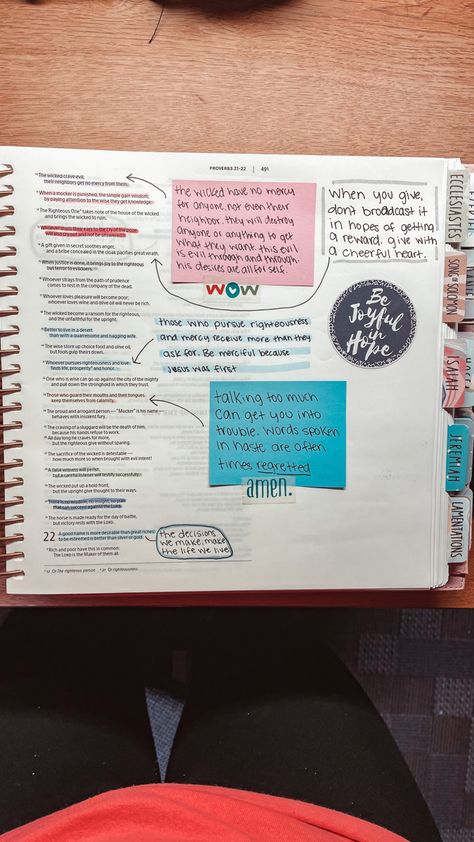 PROVERBS 21–22 | 491
¹⁰The wicked crave evil;
their neighbors get no mercy from them.
¹¹When a mocker is punished, the simple gain wisdom;
by paying attention to the wise they get knowledge.
¹²The Righteous One takes note of the house of the wicked
and brings the wicked to ruin.
¹³Whoever shuts their ears to the cry of the poor
will also cry out and not be answered.
¹⁴A gift given in secret soothes anger,
and a bribe concealed in the cloak pacifies great wrath.
¹⁵When justice is done, it brings joy to the righteous
but terror to evildoers.
¹⁶Whoever strays from the path of prudence
comes to rest in the company of the dead.
¹⁷Whoever loves pleasure will become poor;
whoever loves wine and olive oil will never be rich.
¹⁸The wicked become a ransom for the righteous,
and the unfaithful for the upright.
¹⁹Better to live in a desert
than with a quarrelsome and nagging wife.
²⁰The wise store up choice food and olive oil,
but fools gulp theirs down.
²¹Whoever pursues righteousness and love
finds life, prosperity and honor.
²²One who is wise can go up against the city of the mighty
and pull down the stronghold in which they trust.
²³Those who guard their mouths and their tongues
keep themselves from calamity.
²⁴The proud and arrogant person—"Mocker" is his name—
behaves with insolent fury.
²⁵The craving of a sluggard will be the death of him,
because his hands refuse to work.
²⁶All day long he craves for more,
but the righteous give without sparing.
²⁷The sacrifice of the wicked is detestable—
how much more so when brought with evil intent!
²⁸A false witness will perish,
but a careful listener will testify successfully.
²⁹The wicked put up a bold front,
but the upright give thought to their ways.
³⁰There is no wisdom, no insight, no plan
that can succeed against the LORD.
³¹The horse is made ready for the day of battle,
but victory rests with the LORD.
22 A good name is more desirable than great riches;
to be esteemed is better than silver or gold.
²Rich and poor have this in common:
The LORD is the Maker of them all.
12 Or The righteous person
21 Or righteousness
the wicked have no mercy
for anyone, not even their
neighbor. they will destroy
anyone or anything to get
what they want. this evil
is evil through and through
his desires are all for self.
WOW
When you give,
don't broadcast it
in hopes of getting
a reward. give with
a cheerful heart.
Be
Joyful
in
Hope
those who pursue righteousness
and mercy receive more than they
ask for. Be merciful because
Jesus was first
talking too much
can get you into
trouble. words spoken
in haste are often
times regretted
amen.
the decisions
we make, make
the life we live
ECCLESIASTES
SONG OF SOLOMON
ISAIAH
JEREMIAH
LAMENTATIONS